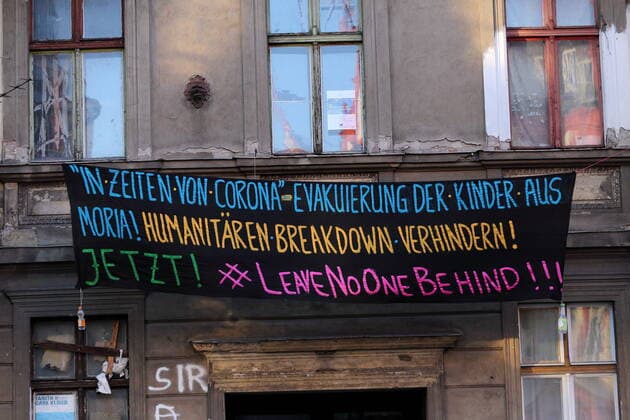 "IN·ZEITEN·VON·CORONA" EVAKUIERUNG DER·KINDER·AUS
MORIA! HUMANITÄREN·BREAKDOWN·VERHINDERN!
JETZT! #LEAVENOONEBEHIND!!!
SIR
A